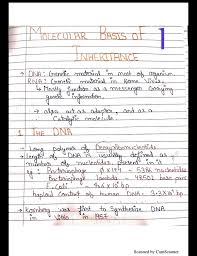 MOLECULAR BASIS OF 1
INHERITANCE
→ DNA: Genetic material in most of organism
RNA: Genetic material in Some Virus.
↳ Mostly function as a messenger carrying
genetic information.
→ also act as adapter, and as a
Catalytic molecule.
1 THE DNA
→ Long polymer of Deoxyribonucleotides
→ length of DNA is usually defined as
number of nucleotides present in it
eg: Bacteriophage φ X 174 - 5386 nucleotides
Bacteriophage lambda - 48502 base
E. Coli -
haploid content of human DNA - 3.3×10⁹ bp.
→ was first to synthesise DNA
in in 1957
Scanned by CamScanner